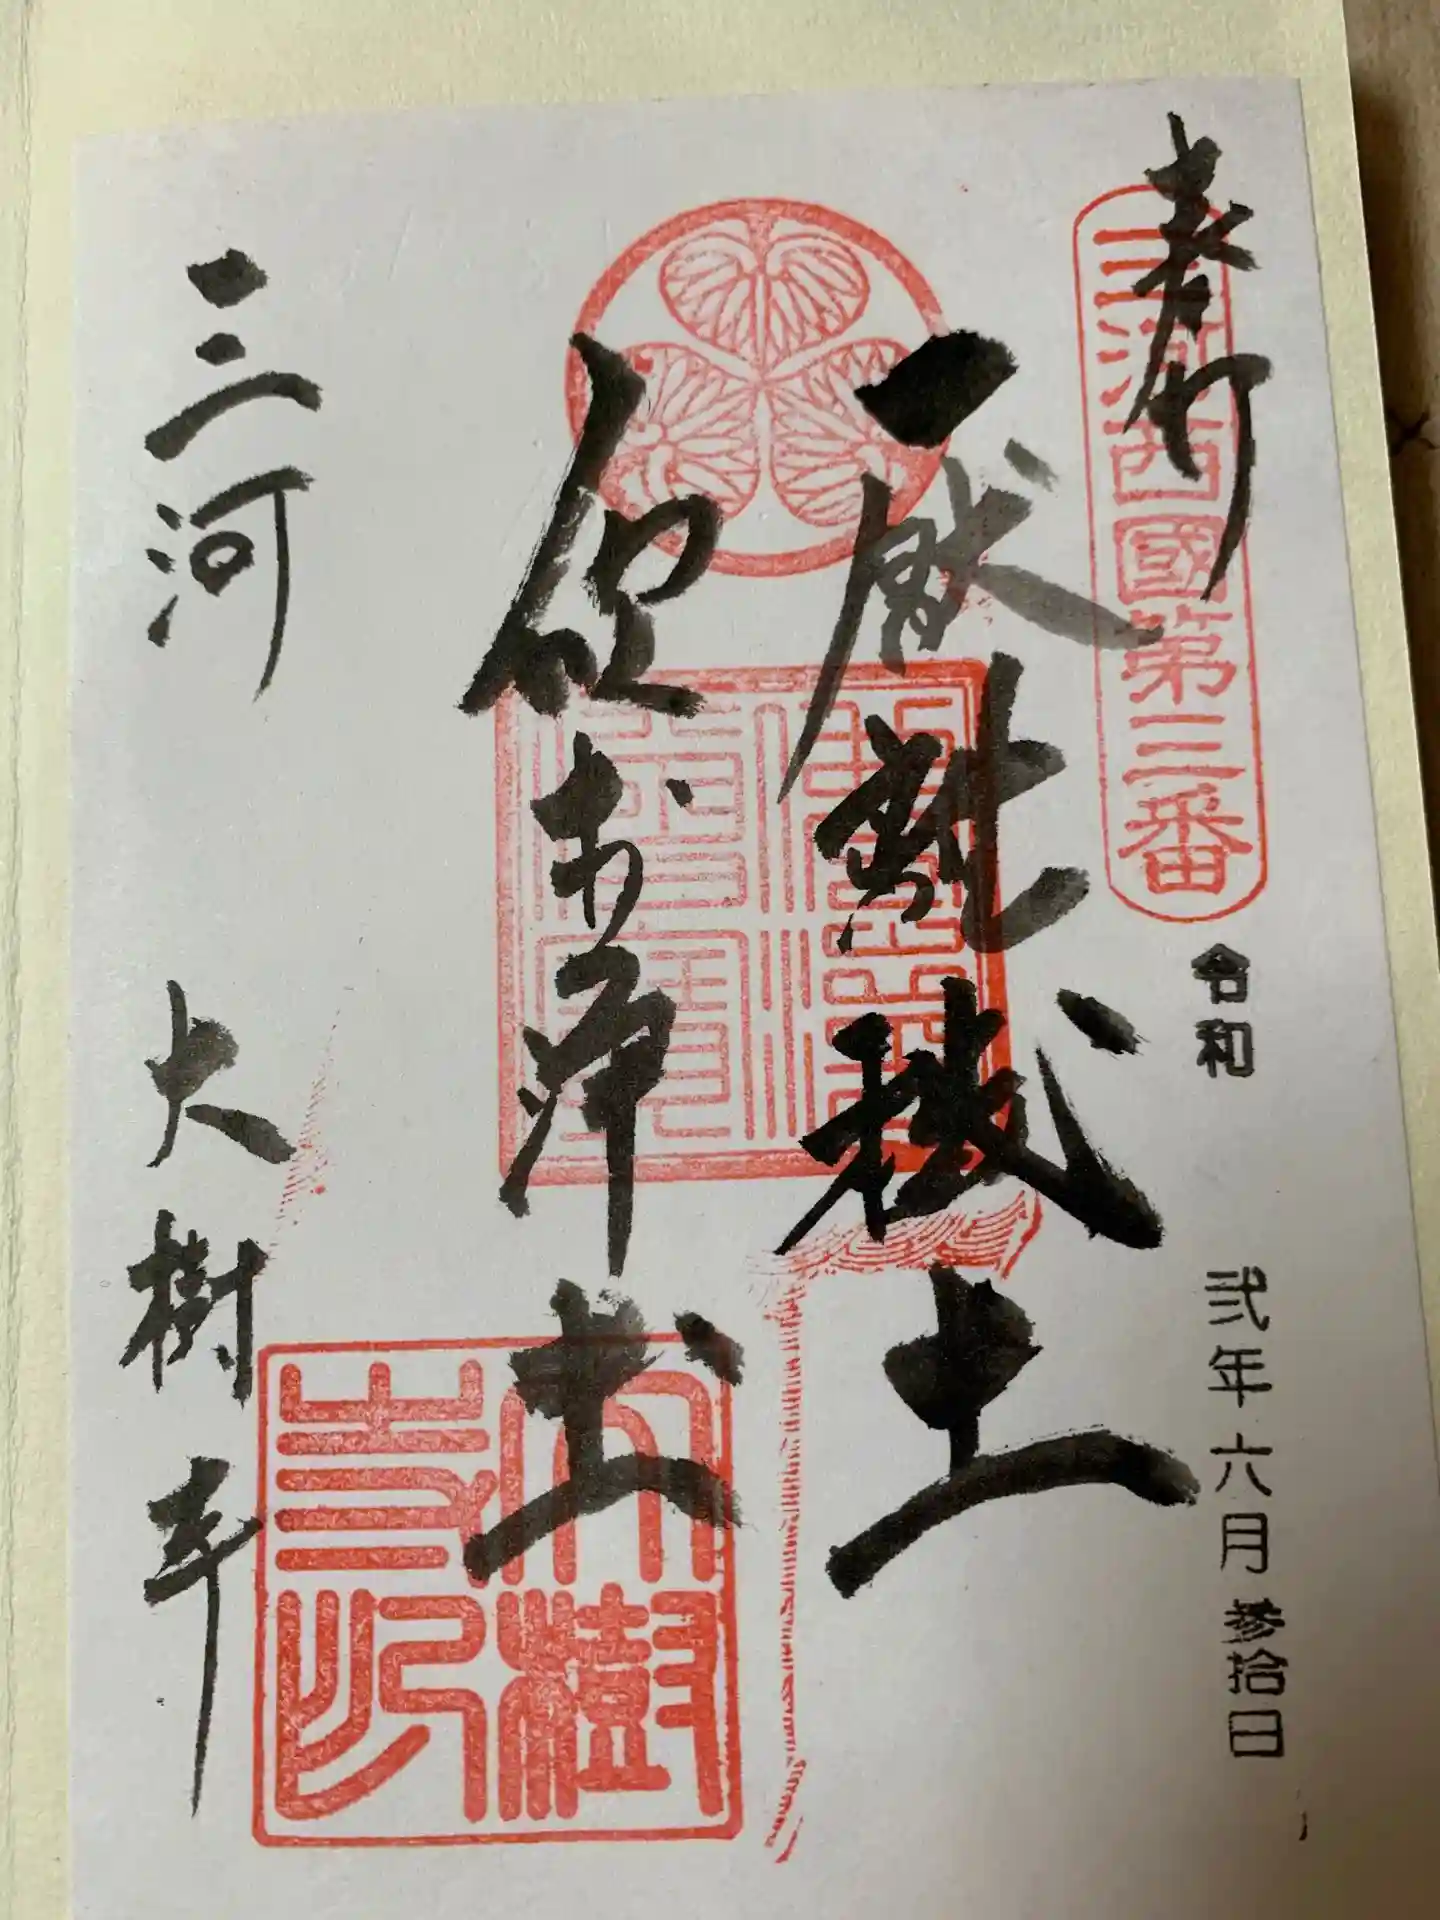 奉行
三河西國第三番
令和 弐年六月参拾日
厭離穢土
欣求浄土
三河 大樹寺
大樹寺印